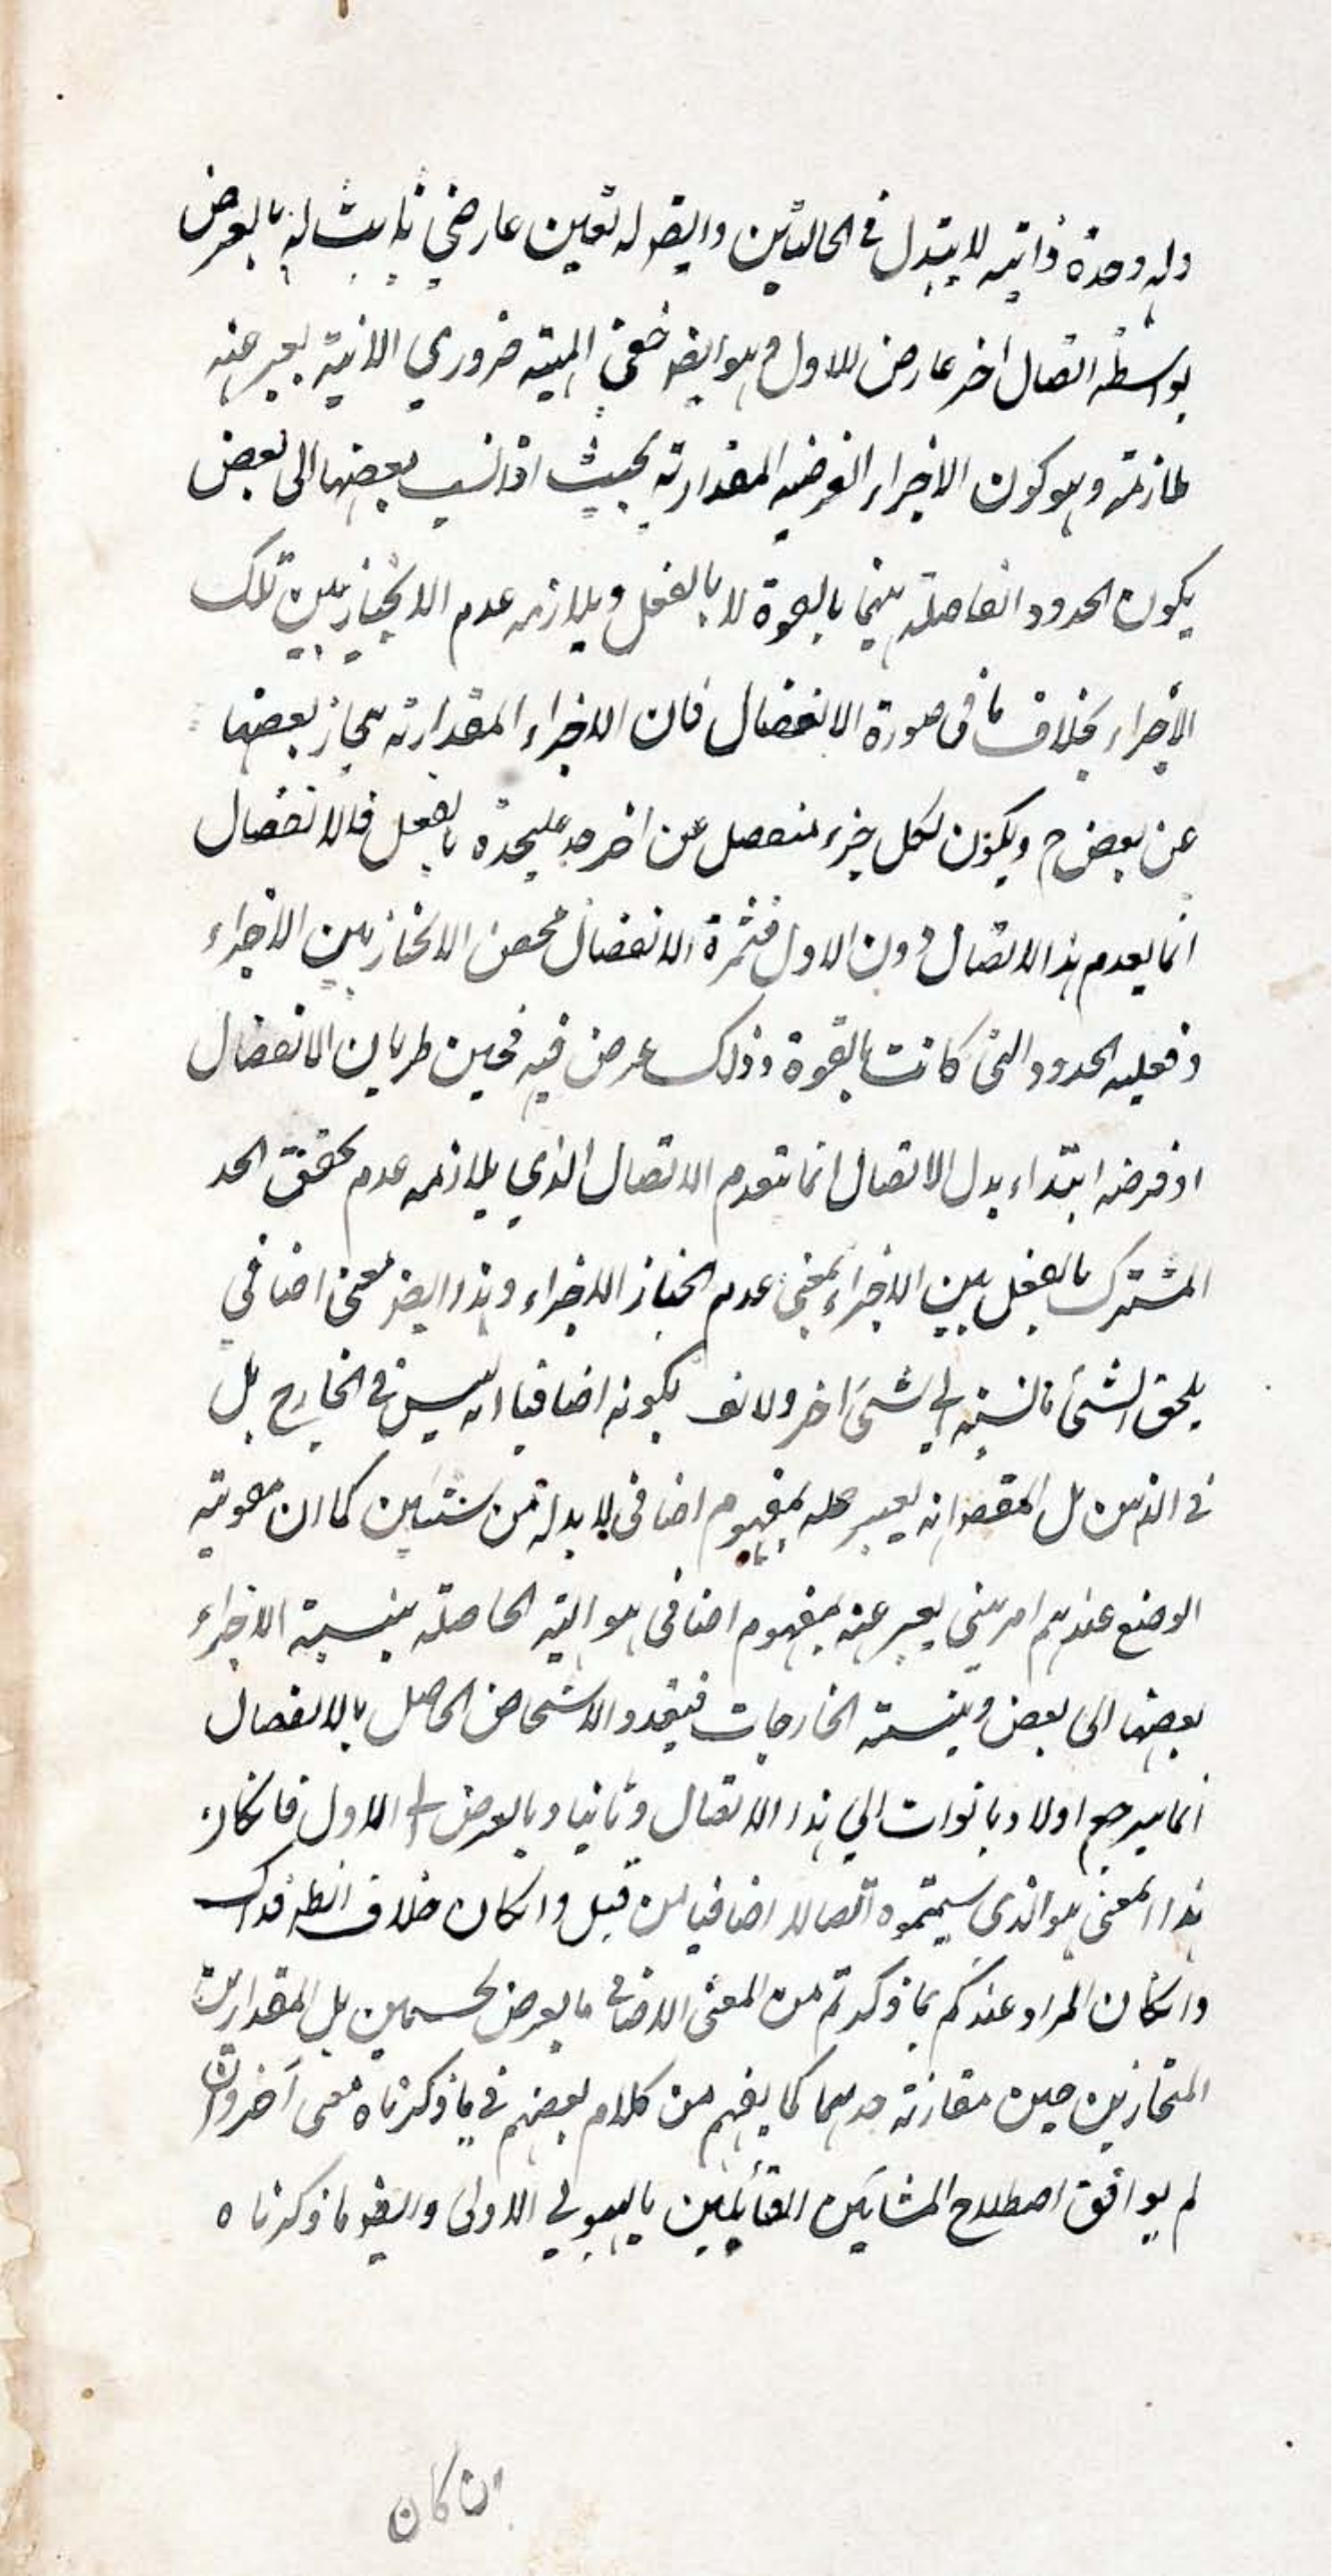 وله وحدة ذاتيه لا يتبدل في الحالتين وايضو له تعين عارضي ثابت له بالعرض
بواسطه اتصال اخر عارض للاول وهو ايضو خفي المية ضروري الانية يعبر عنه
بملازمة وهو كون الاجزاء الفرضيه المقدارية بحيث اذا نسب بعضها الى بعض
يكون الحدود الفاصلة بينهما بالقوة لا بالفعل ويلازمه عدم الانحياز بين تلك
الأجزاء بخلاف ما في صورة الانفصال فان الاجزاء المقدارية ينحاز بعضها
عن بعض ح ويكون لكل جزء منفصل عن اخر حد عليحدة بالفعل فالانفصال
انما يعدم هذا الاتصال دون الاول فثمرة الانفصال محض الانحياز بين الاجزاء
وفعليه الحدود التي كانت بالقوة وذلك عرض فيه فحين طريان الانفصال
او فرضه ابتداء بدل الاتصال انما ينعدم الاتصال الذي يلازمه عدم تحقق الحد
المشترك بالفعل بين الاجزاء بمعنى عدم انحياز الاجزاء وهذا ايضو معنى اضافي
يلحق الشئ بالنسبة الى شئ اخر ولا نعني بكونه اضافيا انه ليس في الخارج بل
في الذهن بل المقصو انه يعبر عنه بمفهوم اضافي لا بد له من شيئين كما ان مقولة
الوضع عندهم امر عيني يعبر عنه بمفهوم اضافي هو الهيئة الحاصلة بنسبة الاجزاء
بعضها الى بعض وبنسبة الخارجات فتعدد الاشخاص الحاصل بالانفصال
انما يرجع اولا وبالذات الى هذا الاتصال وثانيا وبالعرض الى الاول فانكان
هذا المعنى هو الذي سميتموه اتصالا اضافيا من قبل وانكان خلاف الظ فذاك
وانكان المراد عندكم بما ذكرتم من المعنى الاضافي ما يعرض لجسمين بل المقدارين
المنحازين حين مقارنة حديهما كما يفهم من كلام بعضهم في ما ذكرناه معنى آخر وان
لم يوافق اصطلاح المشائين القائلين بالهيولى الاولى وايضو ما ذكرناه
ان كان